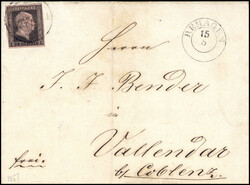 REMAGEN
15
5
Herrn
J. J. Bender
in
Vallendar
b/ Coblenz.
frei.